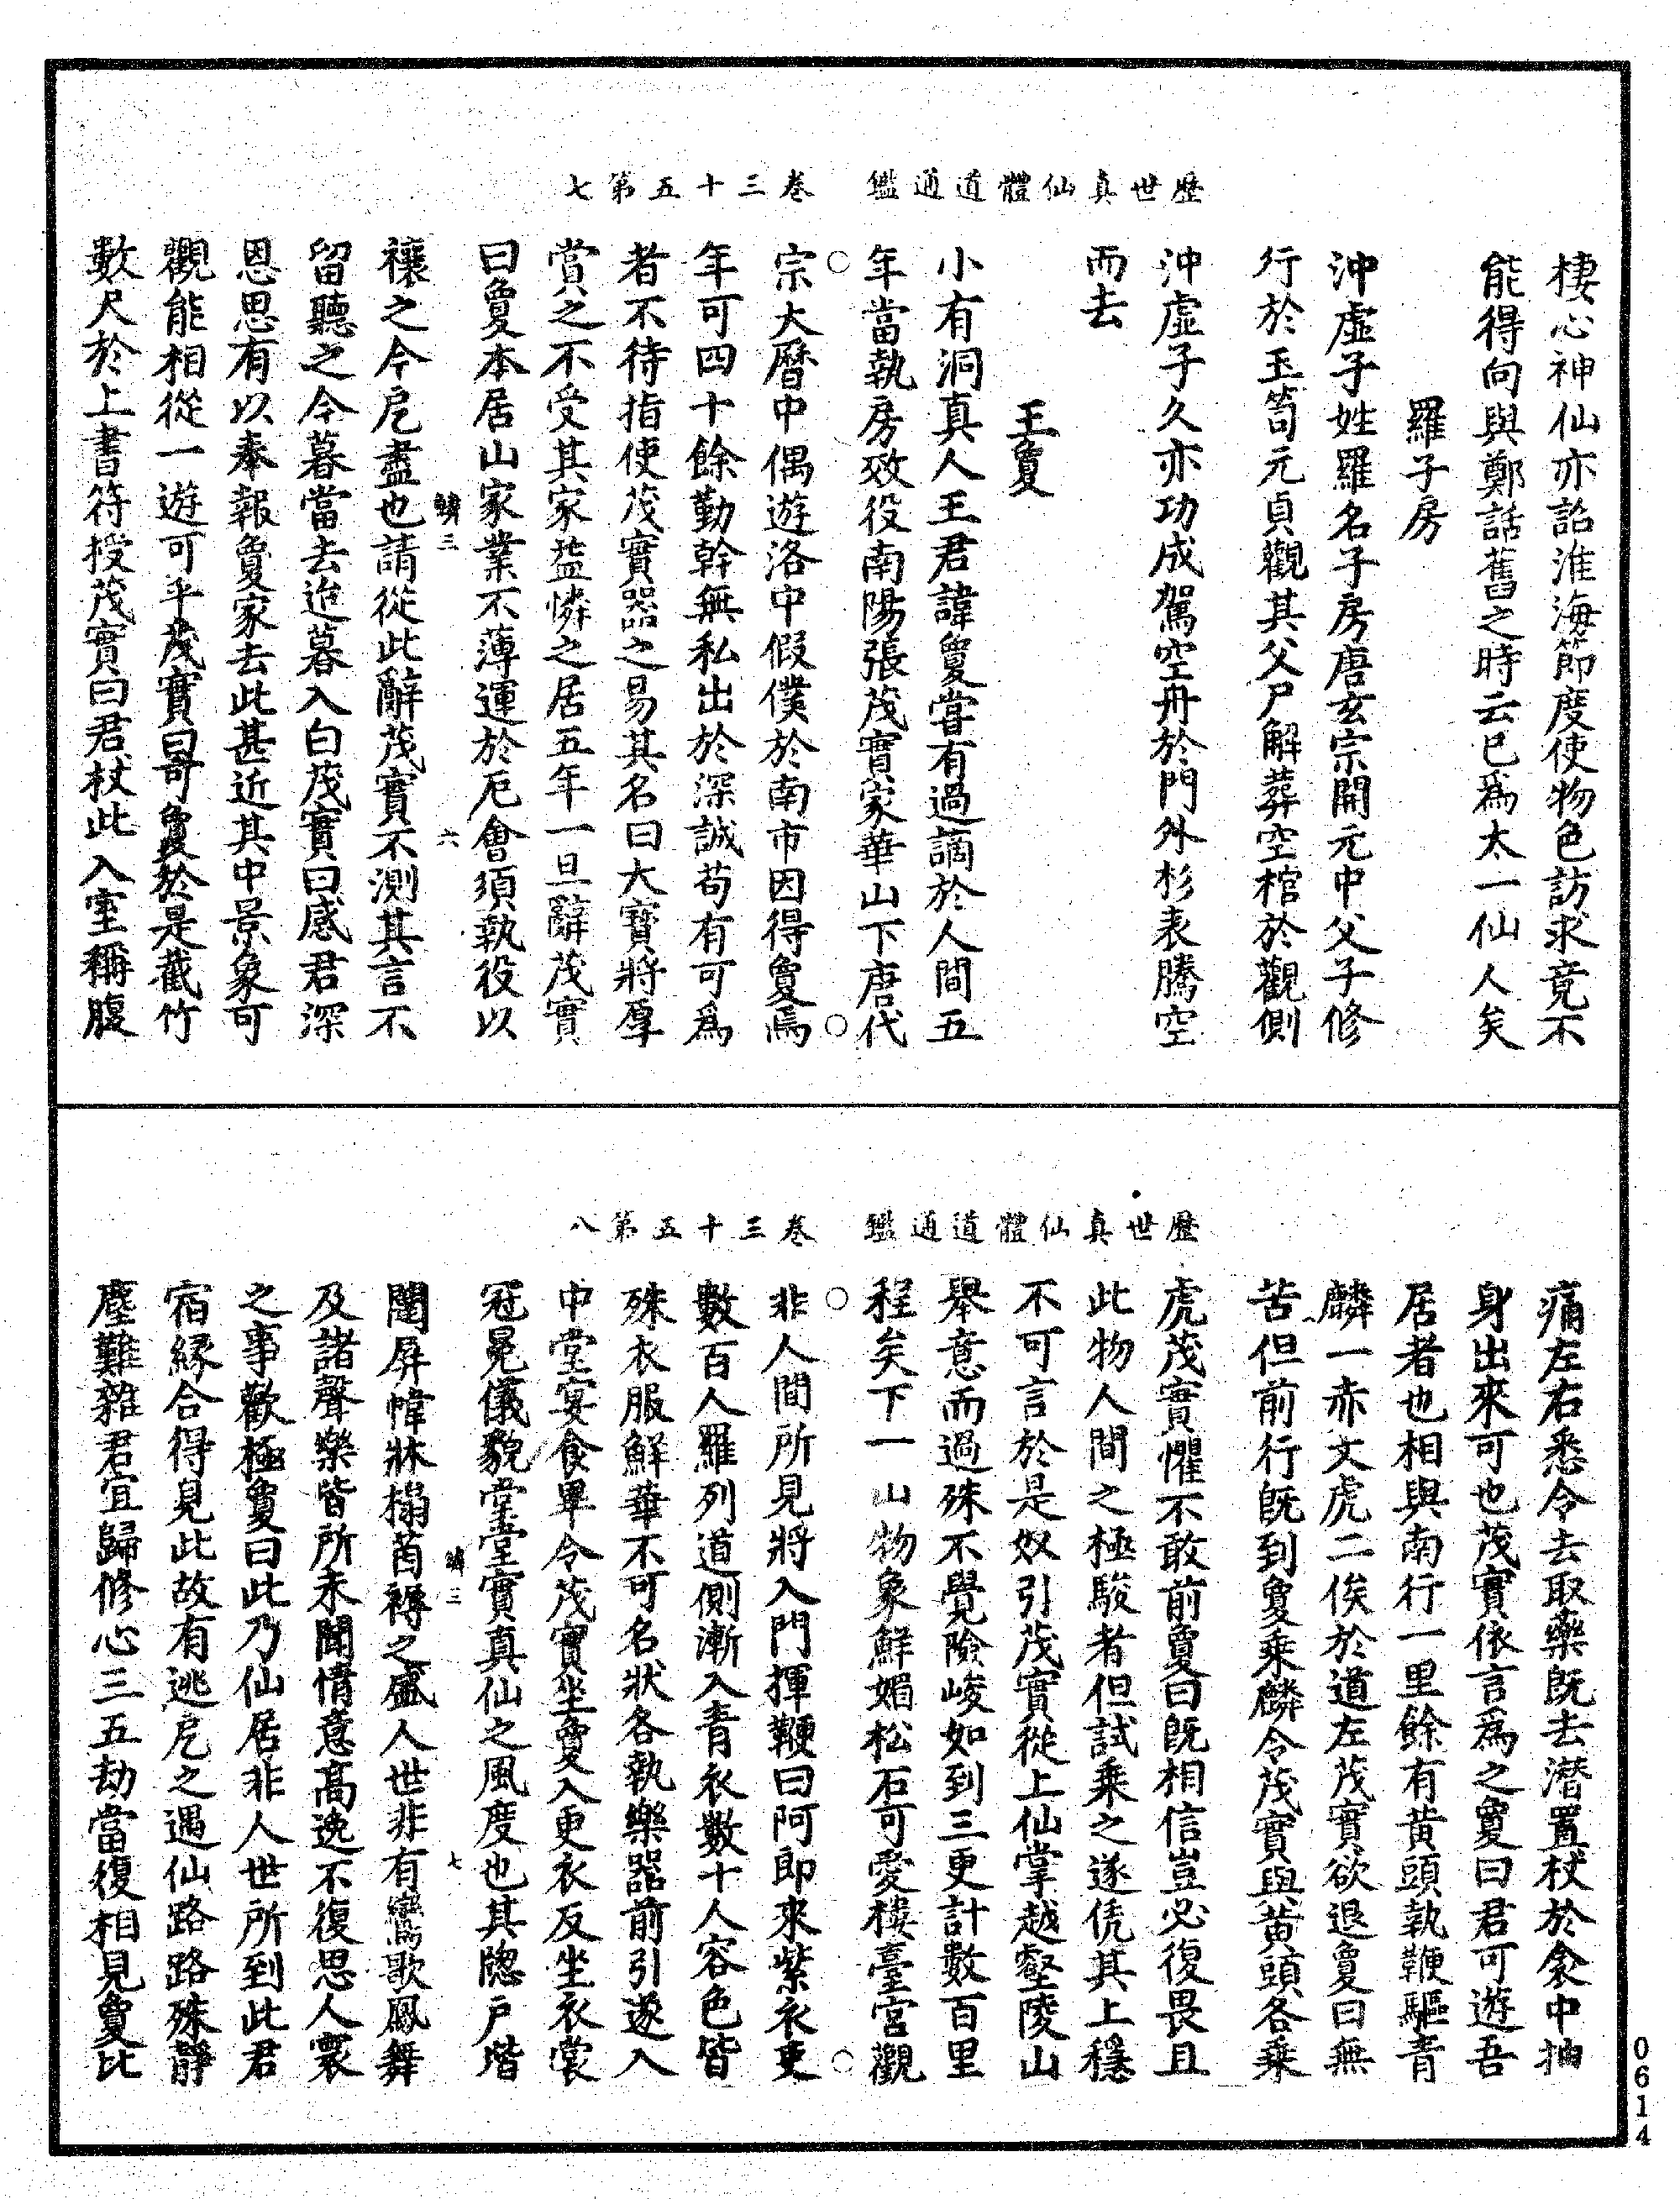 歷世真仙體道通鑑　卷三十五第七
棲心神仙亦詔淮海節度使物色訪求竟不
能得向與鄭話舊之時云已爲太一仙人矣
羅子房
沖虛子姓羅名子房唐玄宗開元中父子修
行於玉笥元貞觀其父尸解葬空棺於觀側
沖虛子久亦功成駕空舟於門外杉表騰空
而去
王夐
小有洞真人王君諱夐嘗有過謫於人間五
年當執房效役南陽張茂實家華山下唐代
宗大曆中偶遊洛中假僕於南市因得夐焉
年可四十餘勤幹無私出於深誠苟有可爲
者不待指使茂實器之易其名曰大寶將厚
賞之不受其家益憐之居五年一旦辭茂實
曰夐本居山家業不薄運於厄會須執役以
鱗三　六
禳之今厄盡也請從此辭茂實不測其言不
留聽之今暮當去迨暮入白茂實曰感君深
恩思有以奉報夐家去此甚近其中景象可
觀能相從一遊可乎茂實曰哥夐於是截竹
數尺於上書符授茂實曰君杖此入室稱腹
歷世真仙體道通鑑　卷三十五第八
痛左右悉令去取藥旣去潛置杖於衾中抽
身出來可也茂實依言爲之夐曰君可遊吾
居者也相與南行一里餘有黃頭執鞭驅青
麟一赤文虎二俟於道左茂實欲退夐曰無
苦但前行旣到夐乘麟令茂實與黃頭各乘
虎茂實懼不敢前夐曰旣相信豈必復畏且
此物人間之極駿者但試乘之遂凭其上穩
不可言於是奴引茂實從上仙掌越壑陵山
舉意而過殊不覺險峻如到三更計數百里
程矣下一山物象鮮媚松石可愛樓臺宮觀
非人間所見將入門揮鞭曰阿郎來紫衣吏
數百人羅列道側漸入青衣數十人容色皆
殊衣服鮮華不可名狀各執樂器前引遂入
中堂宴食畢令茂實坐夐入更衣反坐衣裳
冠冕儀貌堂堂實真仙之風度也其牕戶堦
鱗三　七
闥屏幃牀榻茵褥之盛人世非有鸞歌鳳舞
及諸聲樂皆所未聞情意高逸不復思人寰
之事歡極夐曰此乃仙居非人世所到此君
宿緣合得見此故有逃厄之遇仙路路殊靜
塵難雜君宜歸修心三五劫當復相見夐比
0614